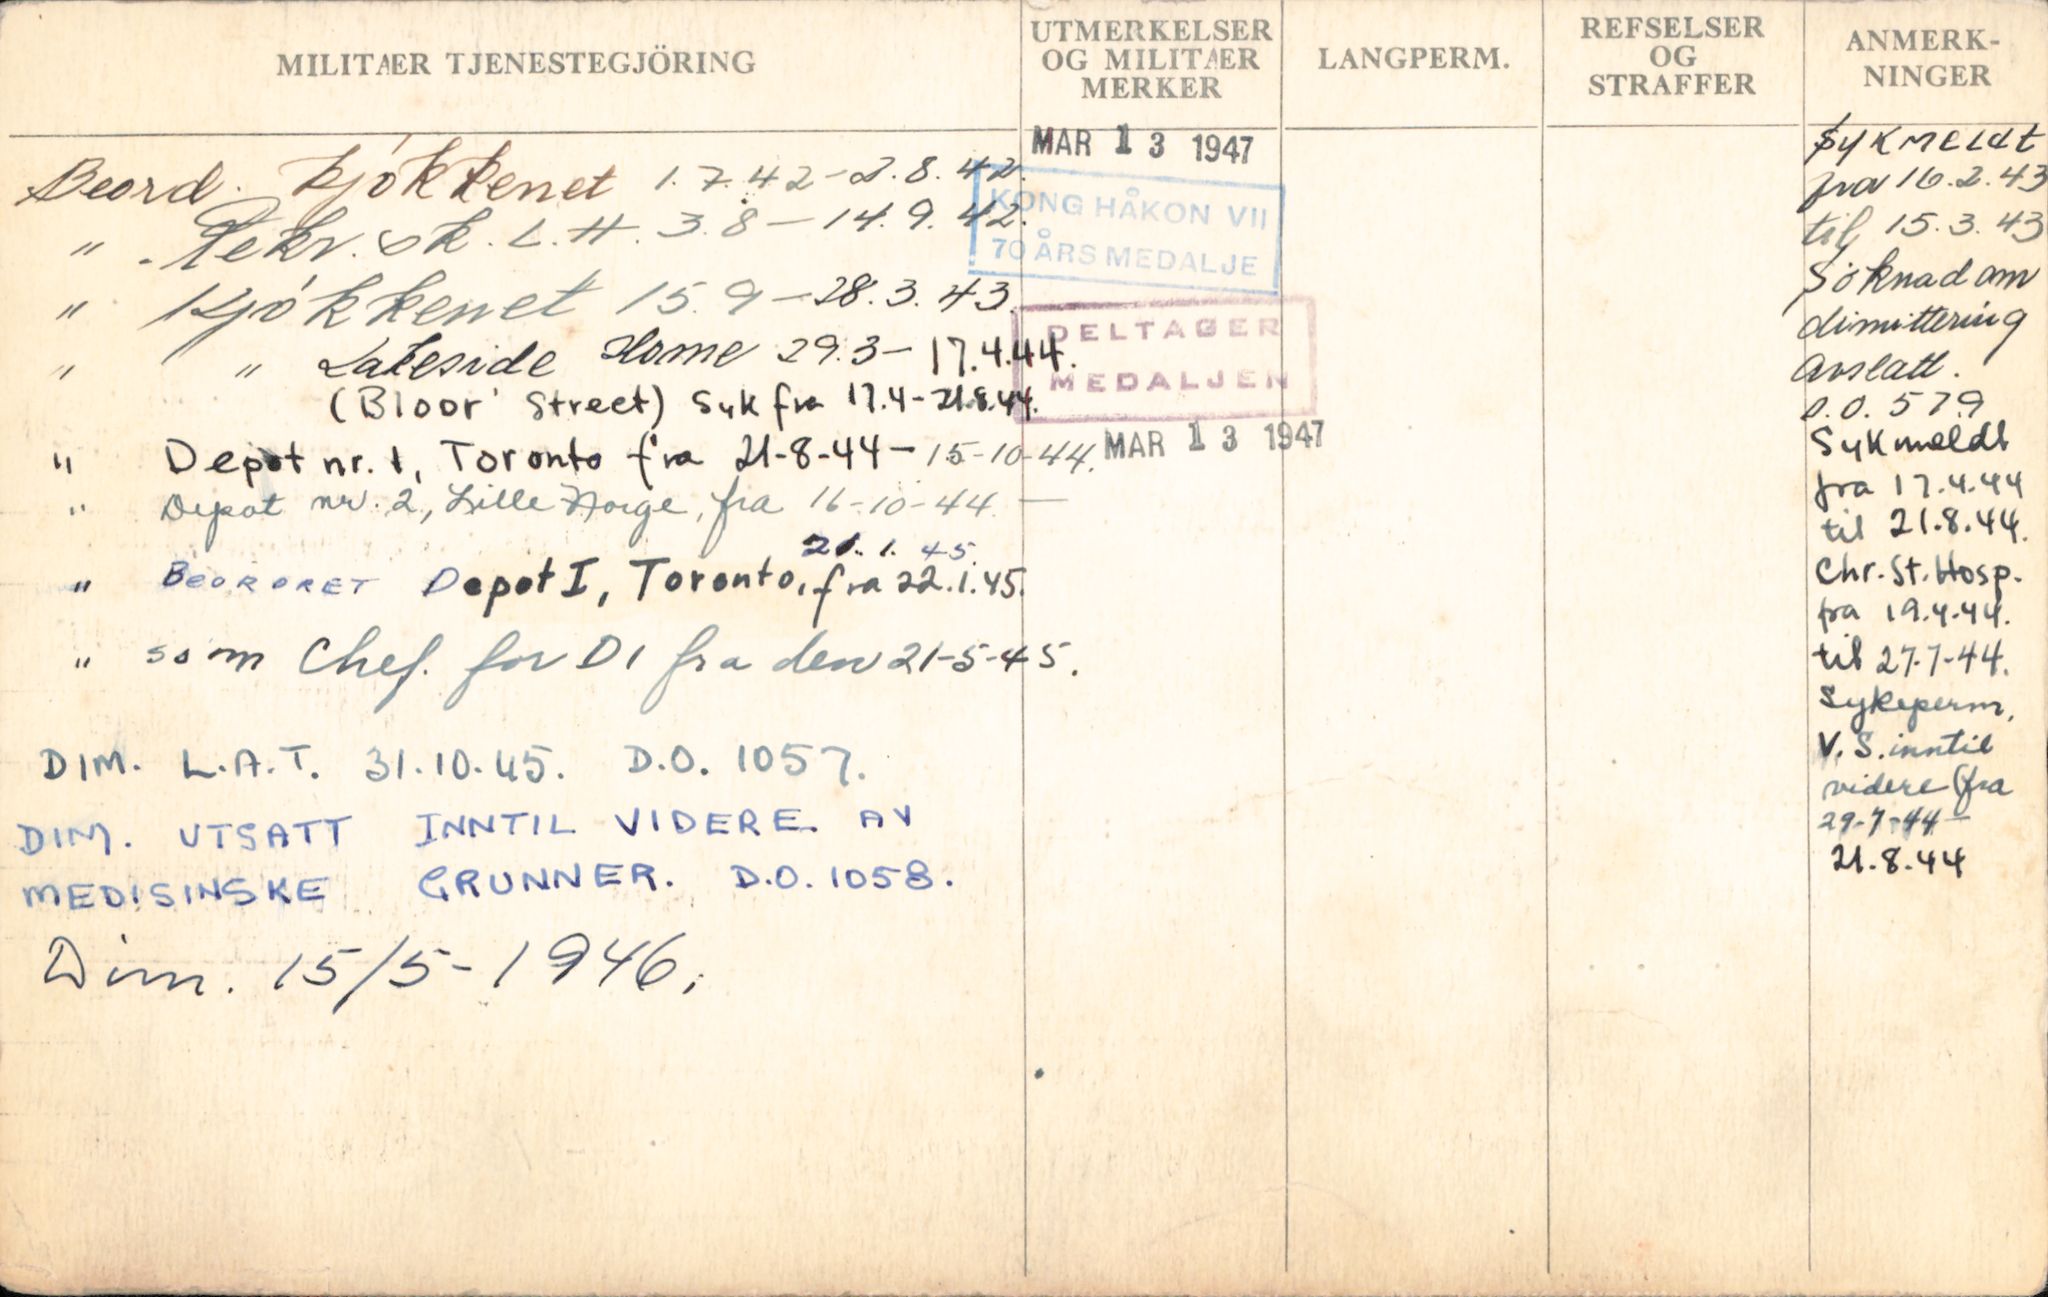 MILITÆR TJENESTEGJÖRING
UTMERKELSER
OG MILITÆR
MERKER
LANGPERM.
REFSELSER
OG
STRAFFER
ANMERK-
NINGER
Beord. Kjøkkenet 1.7.42-2.8.42.
" Rekr. sk. L.H. 3.8-14.9.42.
" Kjøkkenet 15.9-28.3.43.
" " Lakeside Home 29.3-17.4.44.
(Bloor Street) Syk fra 17.4-21.8.44.
" Depot nr. 1, Toronto fra 21-8-44-15-10-44.
" Depot nr. 2, Lille Norge, fra 16-10-44-
21.1.45.
" BEORDRET Depot I, Toronto, fra 22.1.45.
" som Chef. for D1 fra den 21-5-45.
DIM. L.A.T. 31.10.45. D.O. 1057.
DIM. UTSATT INNTIL VIDERE AV
MEDISINSKE GRUNNER. D.O. 1058.
Dim. 15/5-1946.
MAR 13 1947
KONG HÅKON VII
70 ÅRS MEDALJE
DELTAGER
MEDALJEN
MAR 13 1947
Sykmeldt
fra 16.2.43
til 15.3.43
Søknad om
dimittering
avslått.
D.O. 579
Sykmeldt
fra 17.4.44
til 21.8.44.
Chr. St. Hosp.
fra 19.4.44.
til 27-7-44.
Sykeperm,
V.S. inntil
videre (fra
29-7-44-
21.8.44